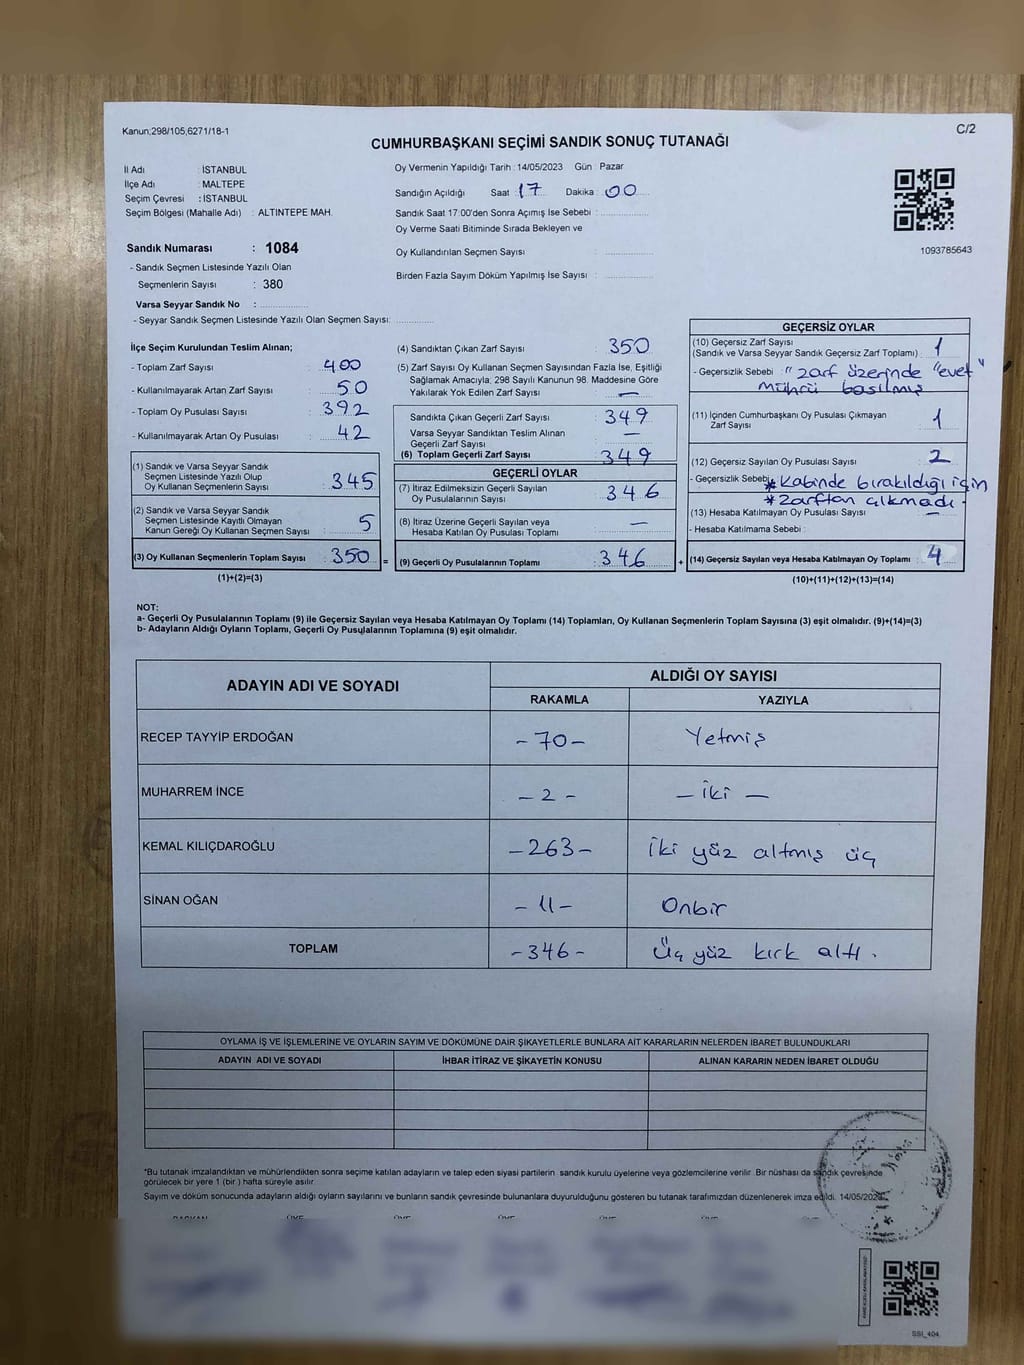 Kanun;298/105,6271/18-1
C/2
CUMHURBAŞKANI SEÇİMİ SANDIK SONUÇ TUTANAĞI
İl Adı : İSTANBUL
İlçe Adı : MALTEPE
Seçim Çevresi : İSTANBUL
Seçim Bölgesi (Mahalle Adı) : ALTINTEPE MAH.
Sandık Numarası : 1084
- Sandık Seçmen Listesinde Yazılı Olan
Seçmenlerin Sayısı : 380
Varsa Seyyar Sandık No :
- Seyyar Sandık Seçmen Listesinde Yazılı Olan Seçmen Sayısı:
Oy Vermenin Yapıldığı Tarih : 14/05/2023 Gün : Pazar
Sandığın Açıldığı Saat : 17 Dakika : 00
Sandık Saat 17:00'den Sonra Açımış İse Sebebi :
Oy Verme Saati Bitiminde Sırada Bekleyen ve
Oy Kullandırılan Seçmen Sayısı :
Birden Fazla Sayım Döküm Yapılmış İse Sayısı :
1093785643
İlçe Seçim Kurulundan Teslim Alınan;
- Toplam Zarf Sayısı : 400
- Kullanılmayarak Artan Zarf Sayısı : 50
- Toplam Oy Pusulası Sayısı : 392
- Kullanılmayarak Artan Oy Pusulası : 42
(1) Sandık ve Varsa Seyyar Sandık
Seçmen Listesinde Yazılı Olup
Oy Kullanan Seçmenlerin Sayısı : 345
(2) Sandık ve Varsa Seyyar Sandık
Seçmen Listesinde Kayıtlı Olmayan
Kanun Gereği Oy Kullanan Seçmen Sayısı : 5
(3) Oy Kullanan Seçmenlerin Toplam Sayısı : 350 =
(1)+(2)=(3)
(4) Sandıktan Çıkan Zarf Sayısı : 350
(5) Zarf Sayısı Oy Kullanan Seçmen Sayısından Fazla İse, Eşitliği
Sağlamak Amacıyla; 298 Sayılı Kanunun 98. Maddesine Göre
Yakılarak Yok Edilen Zarf Sayısı : —
Sandıkta Çıkan Geçerli Zarf Sayısı : 349
Varsa Seyyar Sandıktan Teslim Alınan
Geçerli Zarf Sayısı : —
(6) Toplam Geçerli Zarf Sayısı : 349
GEÇERLİ OYLAR
(7) İtiraz Edilmeksizin Geçerli Sayılan
Oy Pusulalarının Sayısı : 346
(8) İtiraz Üzerine Geçerli Sayılan veya
Hesaba Katılan Oy Pusulası Toplamı : —
(9) Geçerli Oy Pusulalarının Toplamı : 346 +
GEÇERSİZ OYLAR
(10) Geçersiz Zarf Sayısı
(Sandık ve Varsa Seyyar Sandık Geçersiz Zarf Toplamı) : 1
- Geçersizlik Sebebi : "zarf üzerinde "evet"
mührü basılmış
(11) İçinden Cumhurbaşkanı Oy Pusulası Çıkmayan
Zarf Sayısı : 1
(12) Geçersiz Sayılan Oy Pusulası Sayısı : 2
- Geçersizlik Sebebi * Kabinde bırakıldığı için
* Zarftan çıkmadı.
(13) Hesaba Katılmayan Oy Pusulası Sayısı : —
- Hesaba Katılmama Sebebi :
(14) Geçersiz Sayılan veya Hesaba Katılmayan Oy Toplamı : 4
(10)+(11)+(12)+(13)=(14)
NOT:
a- Geçerli Oy Pusulalarının Toplamı (9) ile Geçersiz Sayılan veya Hesaba Katılmayan Oy Toplamı (14) Toplamları, Oy Kullanan Seçmenlerin Toplam Sayısına (3) eşit olmalıdır. (9)+(14)=(3)
b- Adayların Aldığı Oyların Toplamı, Geçerli Oy Pusulalarının Toplamına (9) eşit olmalıdır.
ADAYIN ADI VE SOYADI ALDIĞI OY SAYISI
RAKAMLA YAZIYLA
RECEP TAYYİP ERDOĞAN -70- Yetmiş
MUHARREM İNCE -2- - iki -
KEMAL KILIÇDAROĞLU -263- iki yüz altmış üç
SİNAN OĞAN -11- Onbir
TOPLAM -346- Üç yüz kırk altı.
OYLAMA İŞ VE İŞLEMLERİNE VE OYLARIN SAYIM VE DÖKÜMÜNE DAİR ŞİKAYETLERLE BUNLARA AİT KARARLARIN NELERDEN İBARET BULUNDUKLARI
ADAYIN ADI VE SOYADI İHBAR İTİRAZ VE ŞİKAYETİN KONUSU ALINAN KARARIN NEDEN İBARET OLDUĞU
*Bu tutanak imzalandıktan ve mühürlendikten sonra seçime katılan adayların ve talep eden siyasi partilerin sandık kurulu üyelerine veya gözlemcilerine verilir. Bir nüshası da sandık çevresinde
görülecek bir yere 1 (bir) hafta süreyle asılır.
Sayım ve döküm sonucunda adayların aldığı oyların sayılarını ve bunların sandık çevresinde bulunanlara duyurulduğunu gösteren bu tutanak tarafımızdan düzenlenerek imza edildi. 14/05/2023
SSI_404